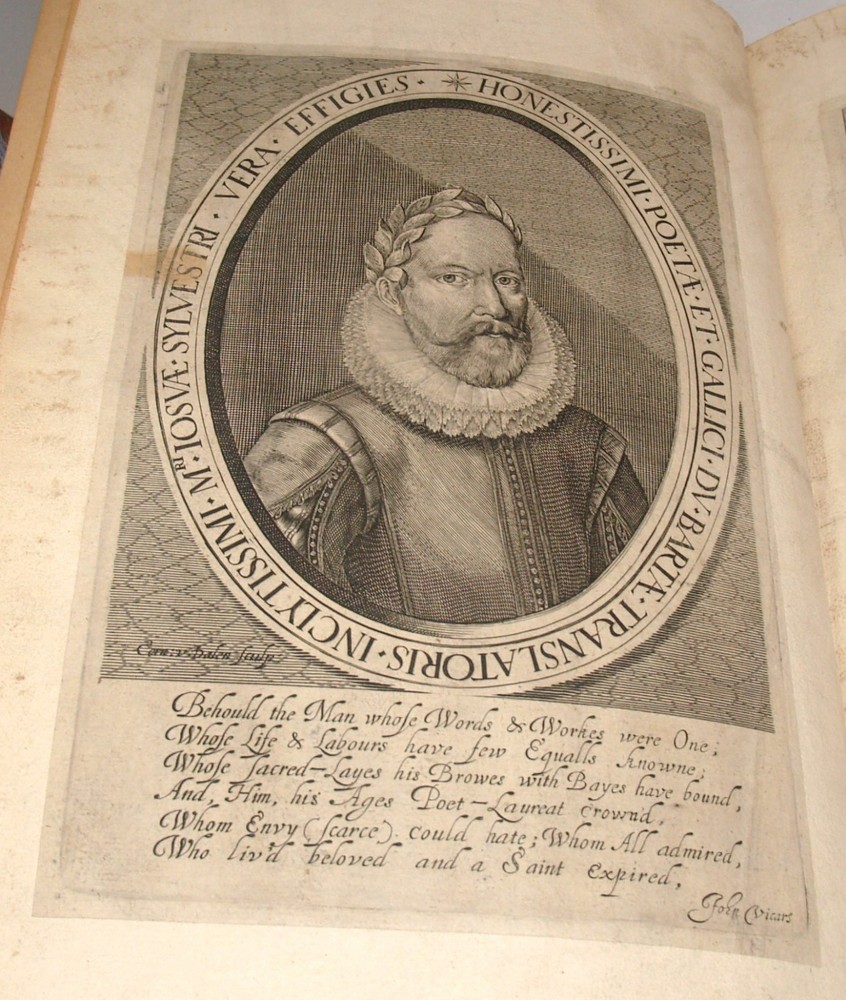 HONESTISSIMI · POETÆ · ET · GALLICI · DV · BARTÆ · TRANSLATORIS · INCLYTISSIMI · Mᴿᴵ IOSVÆ · SYLVESTRI · VERA · EFFIGIES ·
Corn: v. Dalen sculp
Behould the Man whoſe Words & Workes were One;
Whoſe Life & Labours have few Equalls knowne;
Whoſe ſacred-Layes his Browes with Bayes have bound,
And, Him, his Ages Poet-Laureat crown'd,
Whom Envy (ſcarce) could hate; Whom All admired,
Who liv'd beloved and a Saint expired,
John Vicars